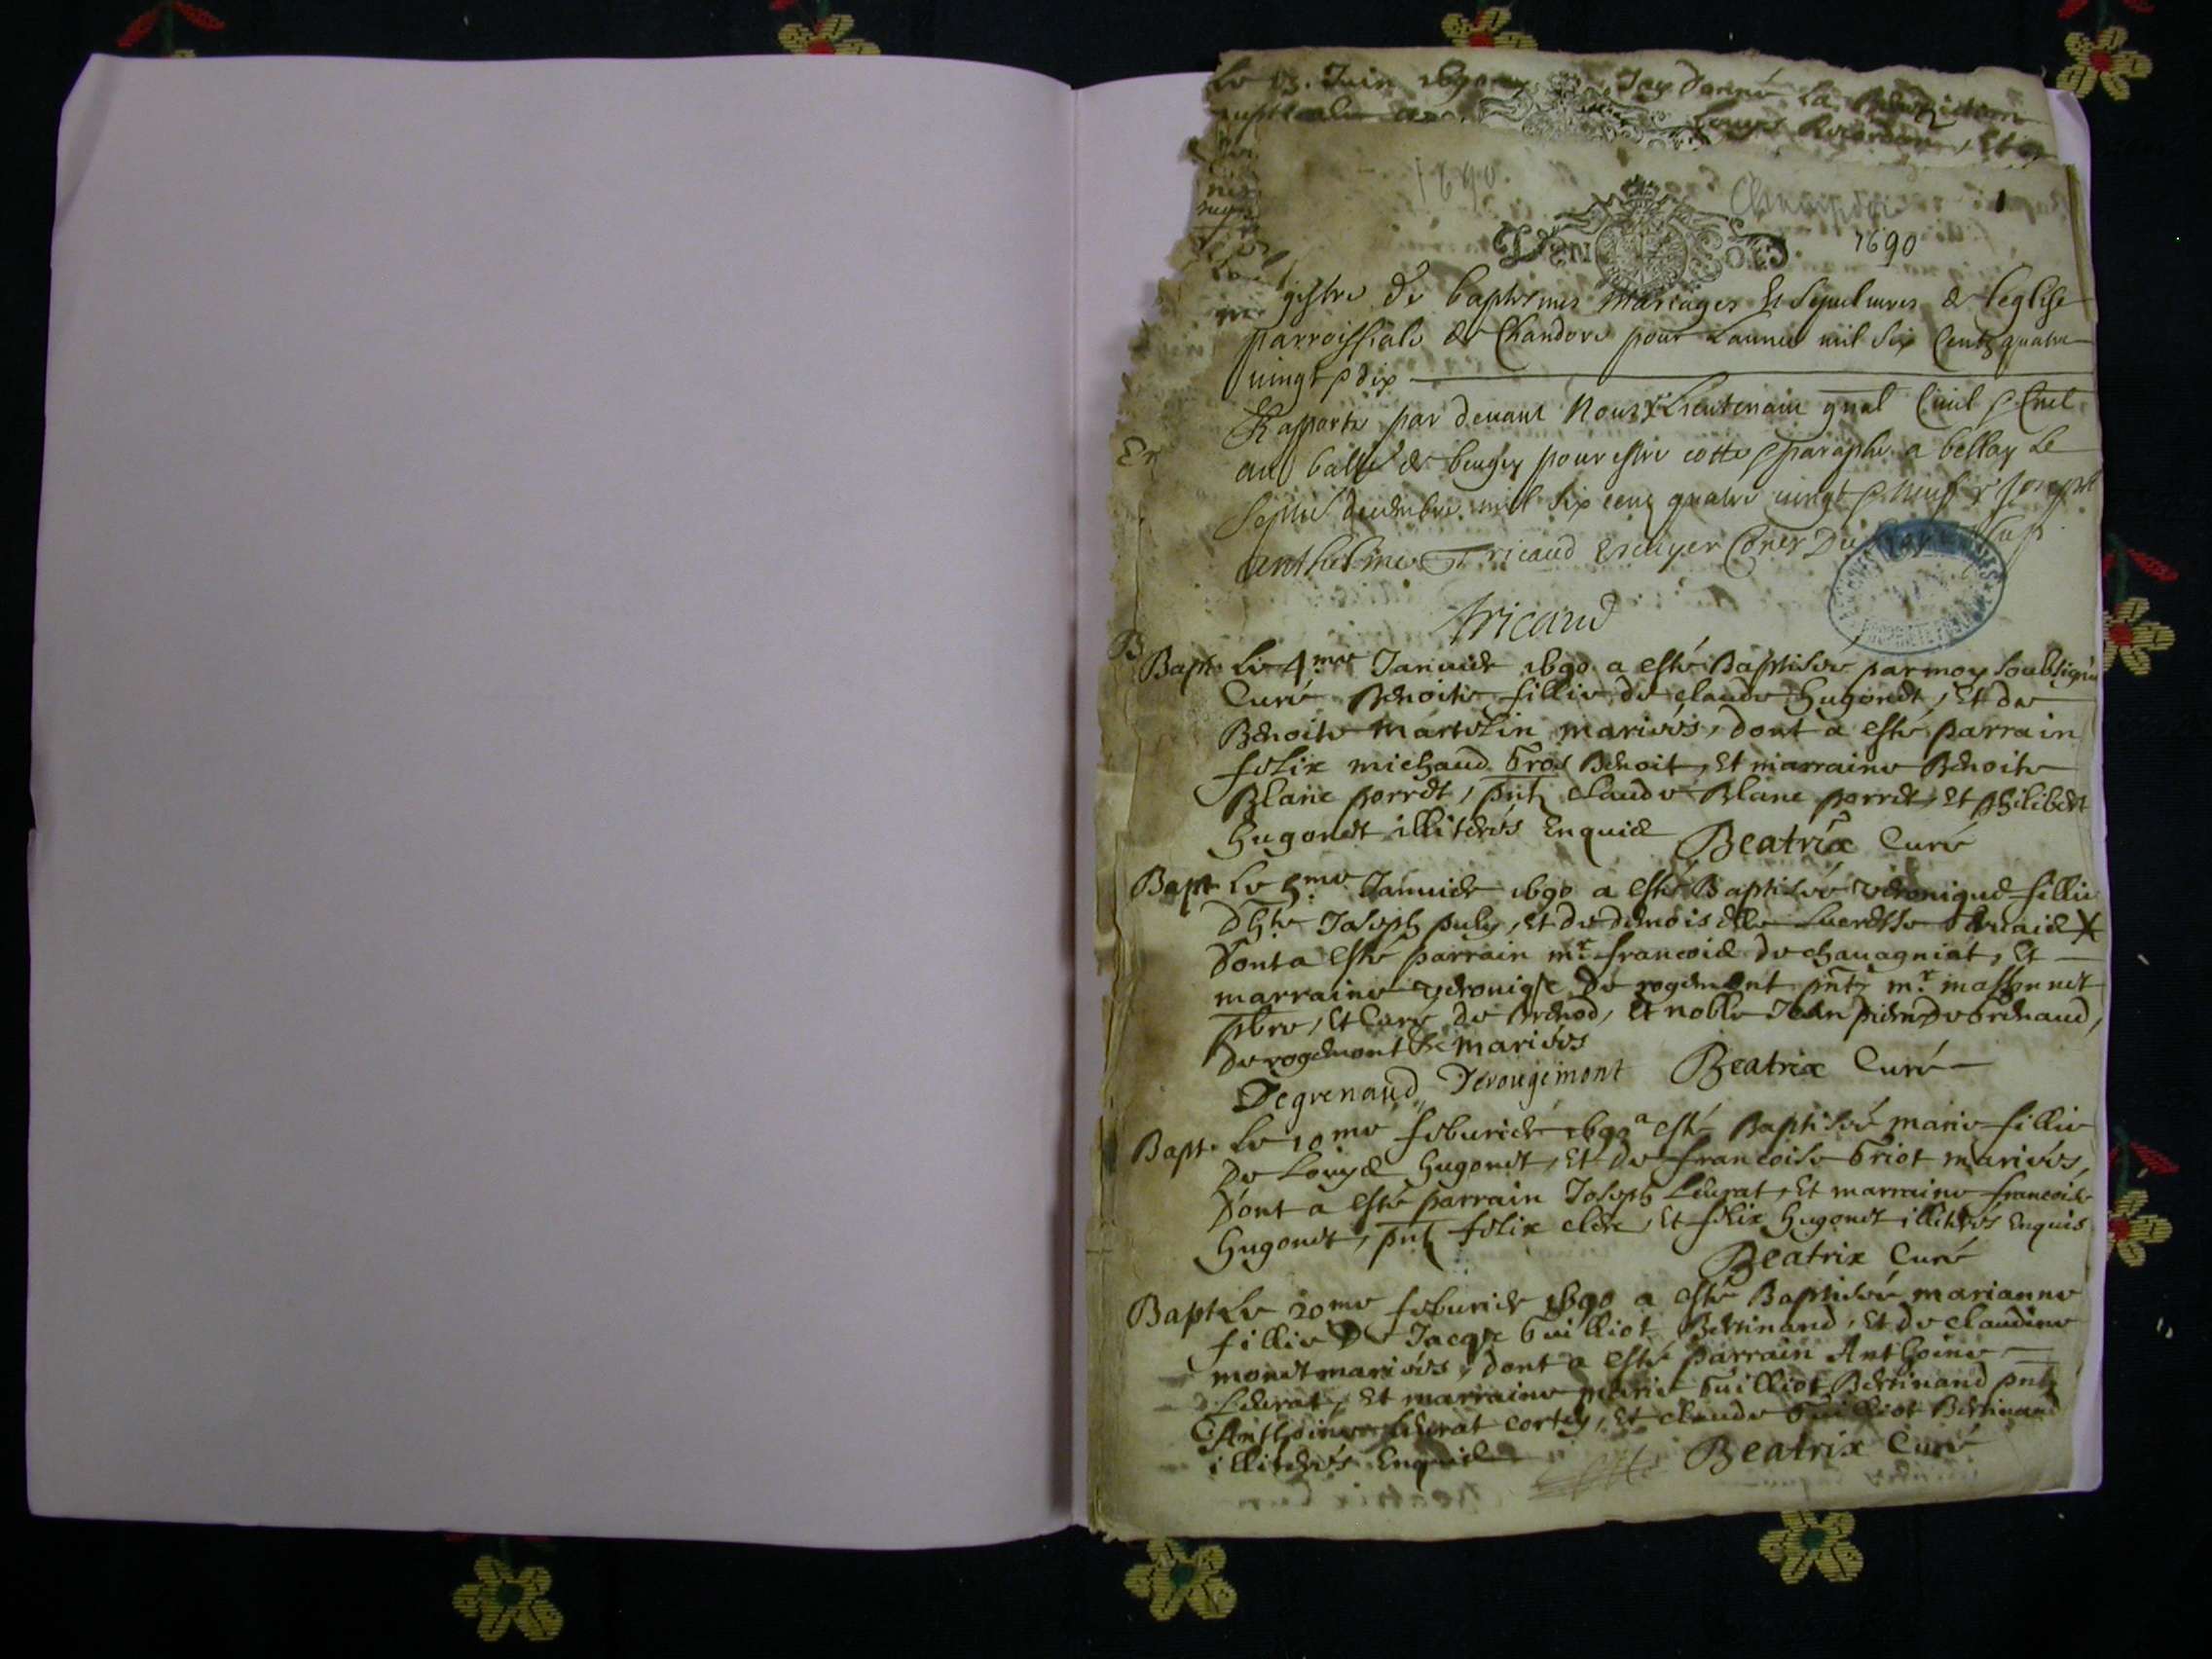 Le 13. Juin 1690 Jay donné La Benediction
Louys
1690.
1
DEN SOLS.
1690
gistre de baptesmes mariages et sepultures de leglise
parroissiale de Chandore pour Lannee mil six Centz quatre
vingt & dix
Raporté par devant Nous Lieutenant gnal Civil & Cnel
au balge de beugey pour estre cotté & paraphé a bellay Le
decembre mil six cent quatre vingt & neuf Joseph
Anthelme Tricaud escuyer Coner Du
Tricaud
Bapt. Le 4.me Januier 1690 a esté Baptisée par moy soubsigné
Curé Benoite fillie de claude Hugonet, Et de
Benoite Martelin mariés, dont a esté parrain
felix michaud Gros Benoit, Et marraine Benoite
Blanc perret, pnt claude Blanc perret, Et philibert
Hugonet illiterés Enquis Beatrix Curé
Bapt. Le 5.me Januier 1690 a esté Baptisée Veronique fillie
Joseph puly, Et de demoiselle
Dont a esté parrain mr. francois de chavagniat, Et
marraine De rogemont pnt mr. massonnet
pbre, Et Curé de Brenod, Et noble Jean
De rogemont mariés
Degrenaud Derougemont Beatrix Curé
Bapt. Le 10.me feburier 1690 a esté Baptisée marie fillie
De Louys Hugonet, Et De francoise Griot mariés,
Dont a esté parrain Joseph Leurat, Et marraine francoise
Hugonet, pnt felix clerc, Et felix Hugonet illiterés Enquis
Beatrix Curé
Bapt. Le 20.me feburier 1690 a esté Baptisée marianne
fillie De Jacq Guilliot Bertinand, Et De claudine
monet mariés, dont a esté parrain Anthoine
Leurat, Et marraine marie Guilliot Bertinand pnt
Anthoine Leurat cortey, Et claude Guilliot Bertinand
illiterés Enquis Beatrix Curé